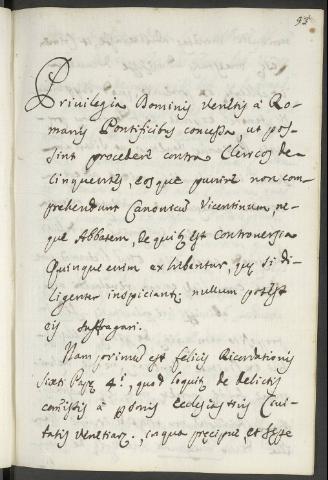 93
Privilegia Dominis Venetis à Ro-
manis Pontificibus concessa, ut pos-
sint procedere contra Clericos de-
linquentes, eosque punire non com-
prehendunt Canonicum Vicentinum, ne-
que Abbatem, de quibus est controversia
Quinque enim exhibentur, quę si di-
ligenter inspiciantur, nullum potest
eis suffragari.
Nam primum est felicis Recordationis
Sixti Papę 4.i, quod loquitur de delictis
commissis à personis ecclesiasticis Civi-
tatis Venetiarum, in qua pręcipue, et